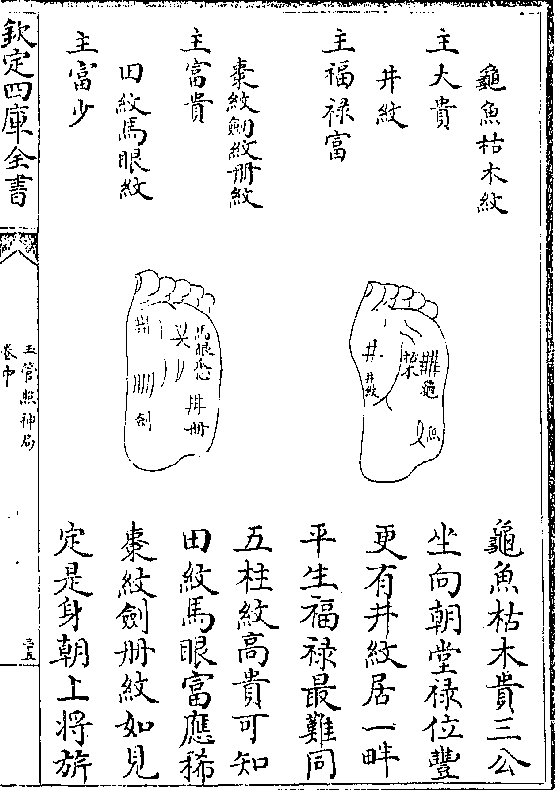 龜魚枯木紋
主大貴
井紋
主福禄富
棗紋劍紋册紋
主富貴
田紋馬眼紋
主富少
龜
魚
枯木
井紋
馬眼
册
劍
龜魚枯木貴三公
坐向朝堂禄位豐
更有井紋居一畔
平生福禄最難同
五柱紋高貴可知
田紋馬眼富應稀
棗紋劍册紋如見
定是身朝上將旂
欽定四庫全書
玉管照神局
卷中
三五